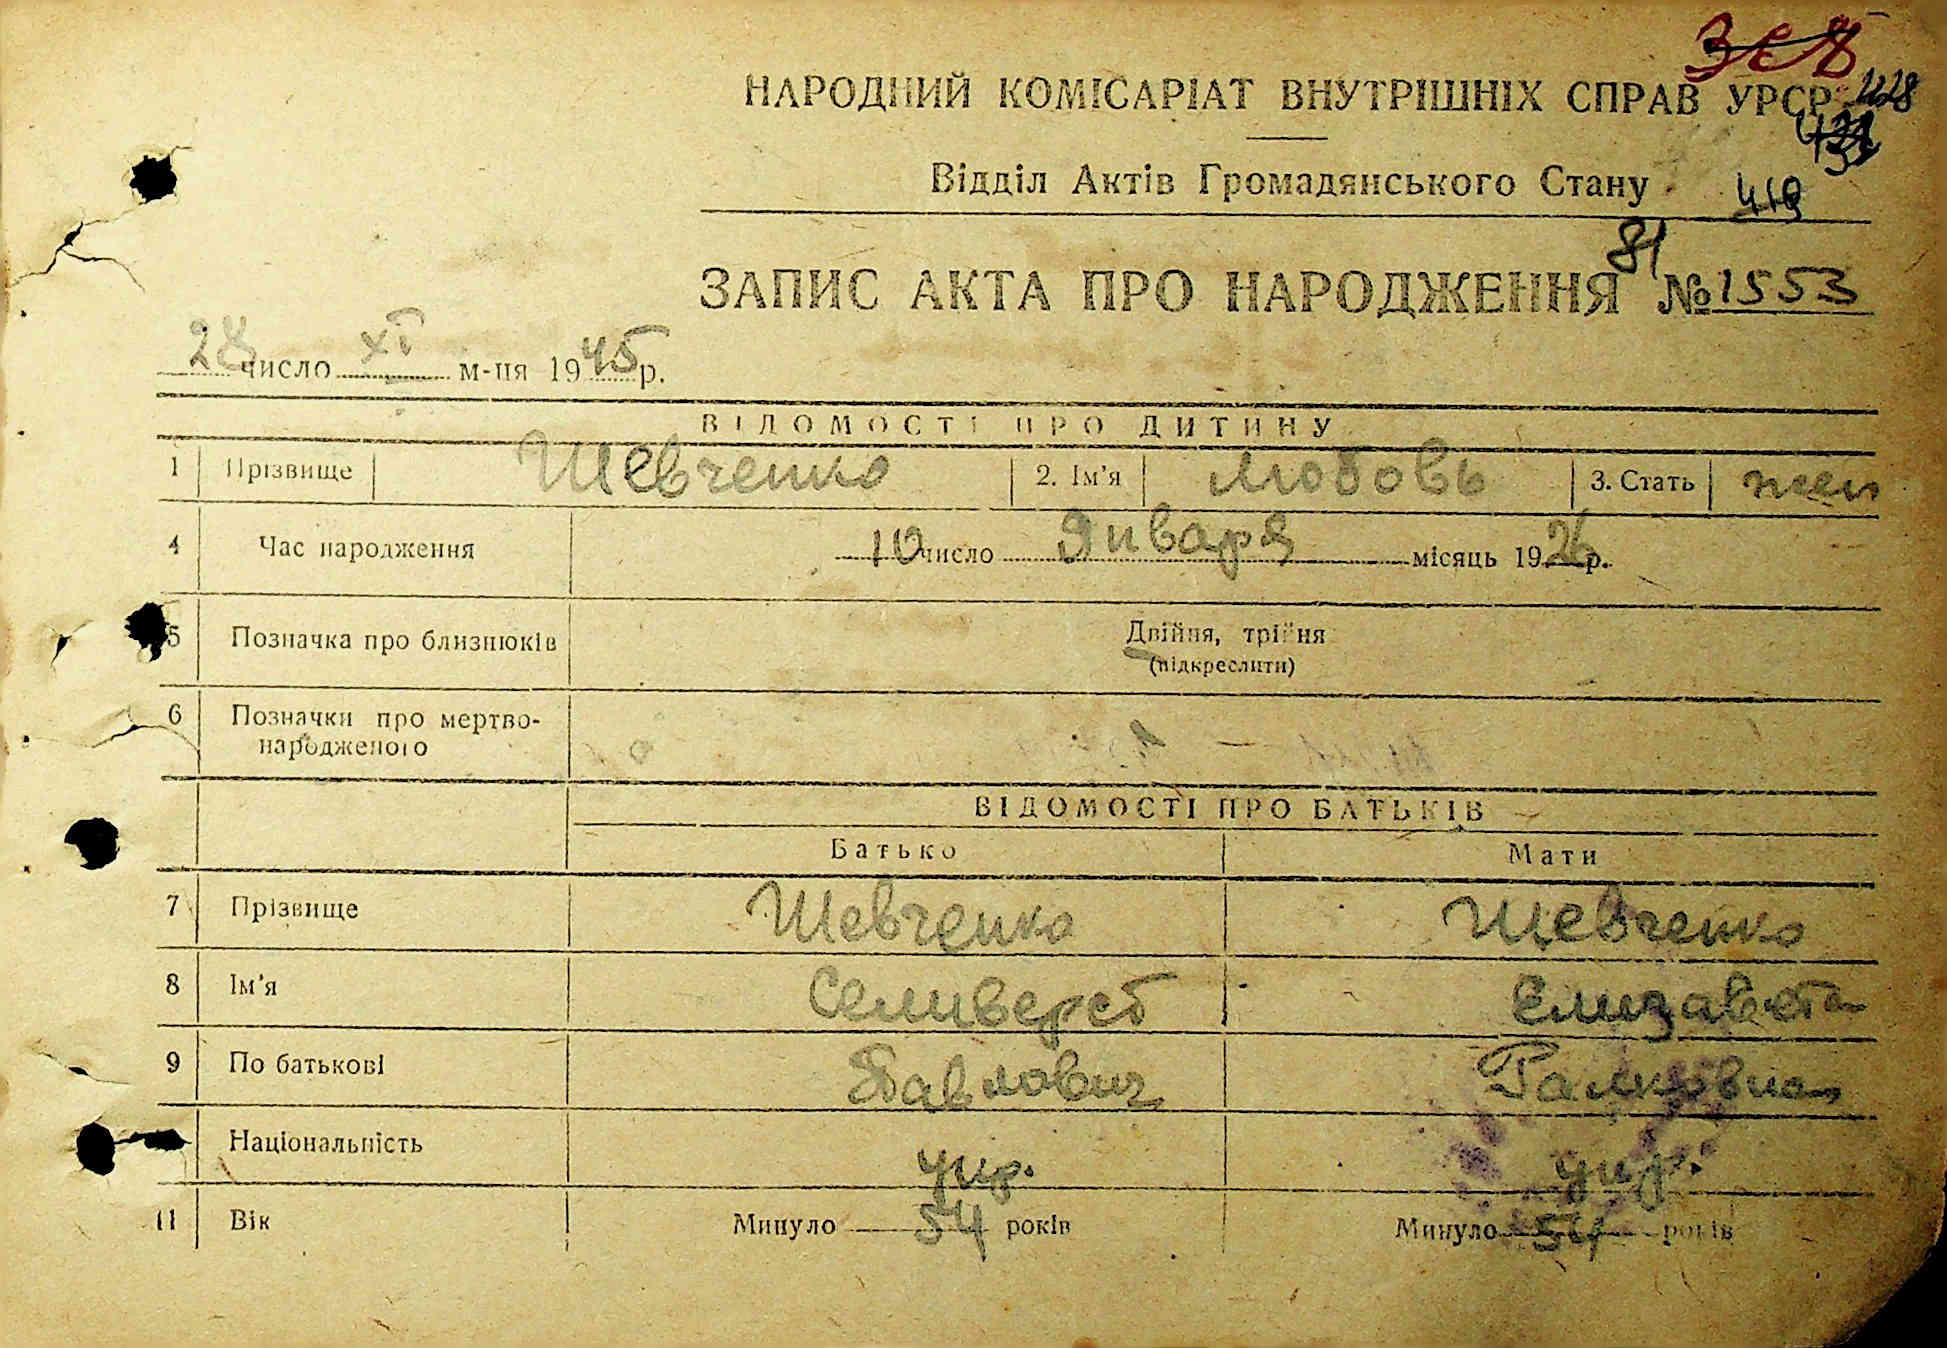 НАРОДНИЙ КОМІСАРІАТ ВНУТРІШНІХ СПРАВ УРСР
Відділ Актів Громадянського Стану
419
81
ЗАПИС АКТА ПРО НАРОДЖЕННЯ № 1553
28 число XI м-ця 1945 р.
ВІДОМОСТІ ПРО ДИТИНУ
1 Прізвище Шевченко 2. Ім'я Любовь 3. Стать жен
4 Час народження 10 число Января місяць 1926 р.
5 Позначка про близнюків Двійня, трійня
(підкреслити)
6 Позначки про мертво-
народженого
ВІДОМОСТІ ПРО БАТЬКІВ
Батько Мати
7 Прізвище Шевченко Шевченко
8 Ім'я Селиверст Елизавета
9 По батькові Павлович
Національність укр. укр.
11 Вік Минуло 54 років Минуло 54 років